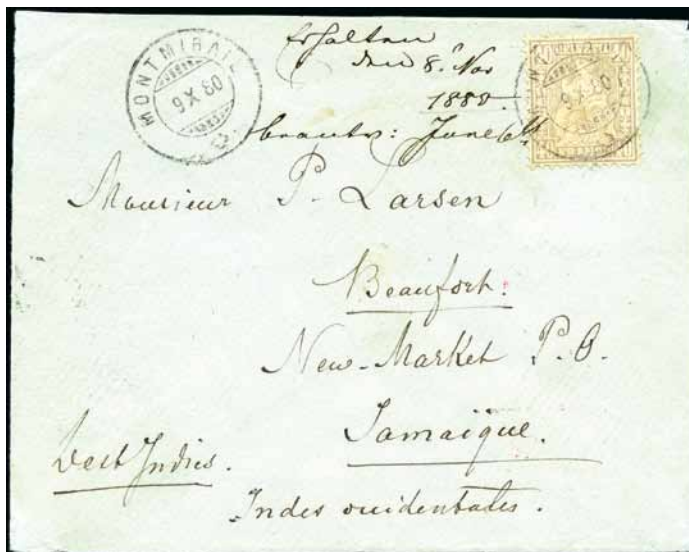 MONTMIRAIL
9 X 80
Erhalten
den 8. Nov
1880.
beantw: June
Monsieur P. Larsen
Beaufort.
New-Market P. O.
Jamaïque.
West Indies.
Indes occidentales.
9 X 80